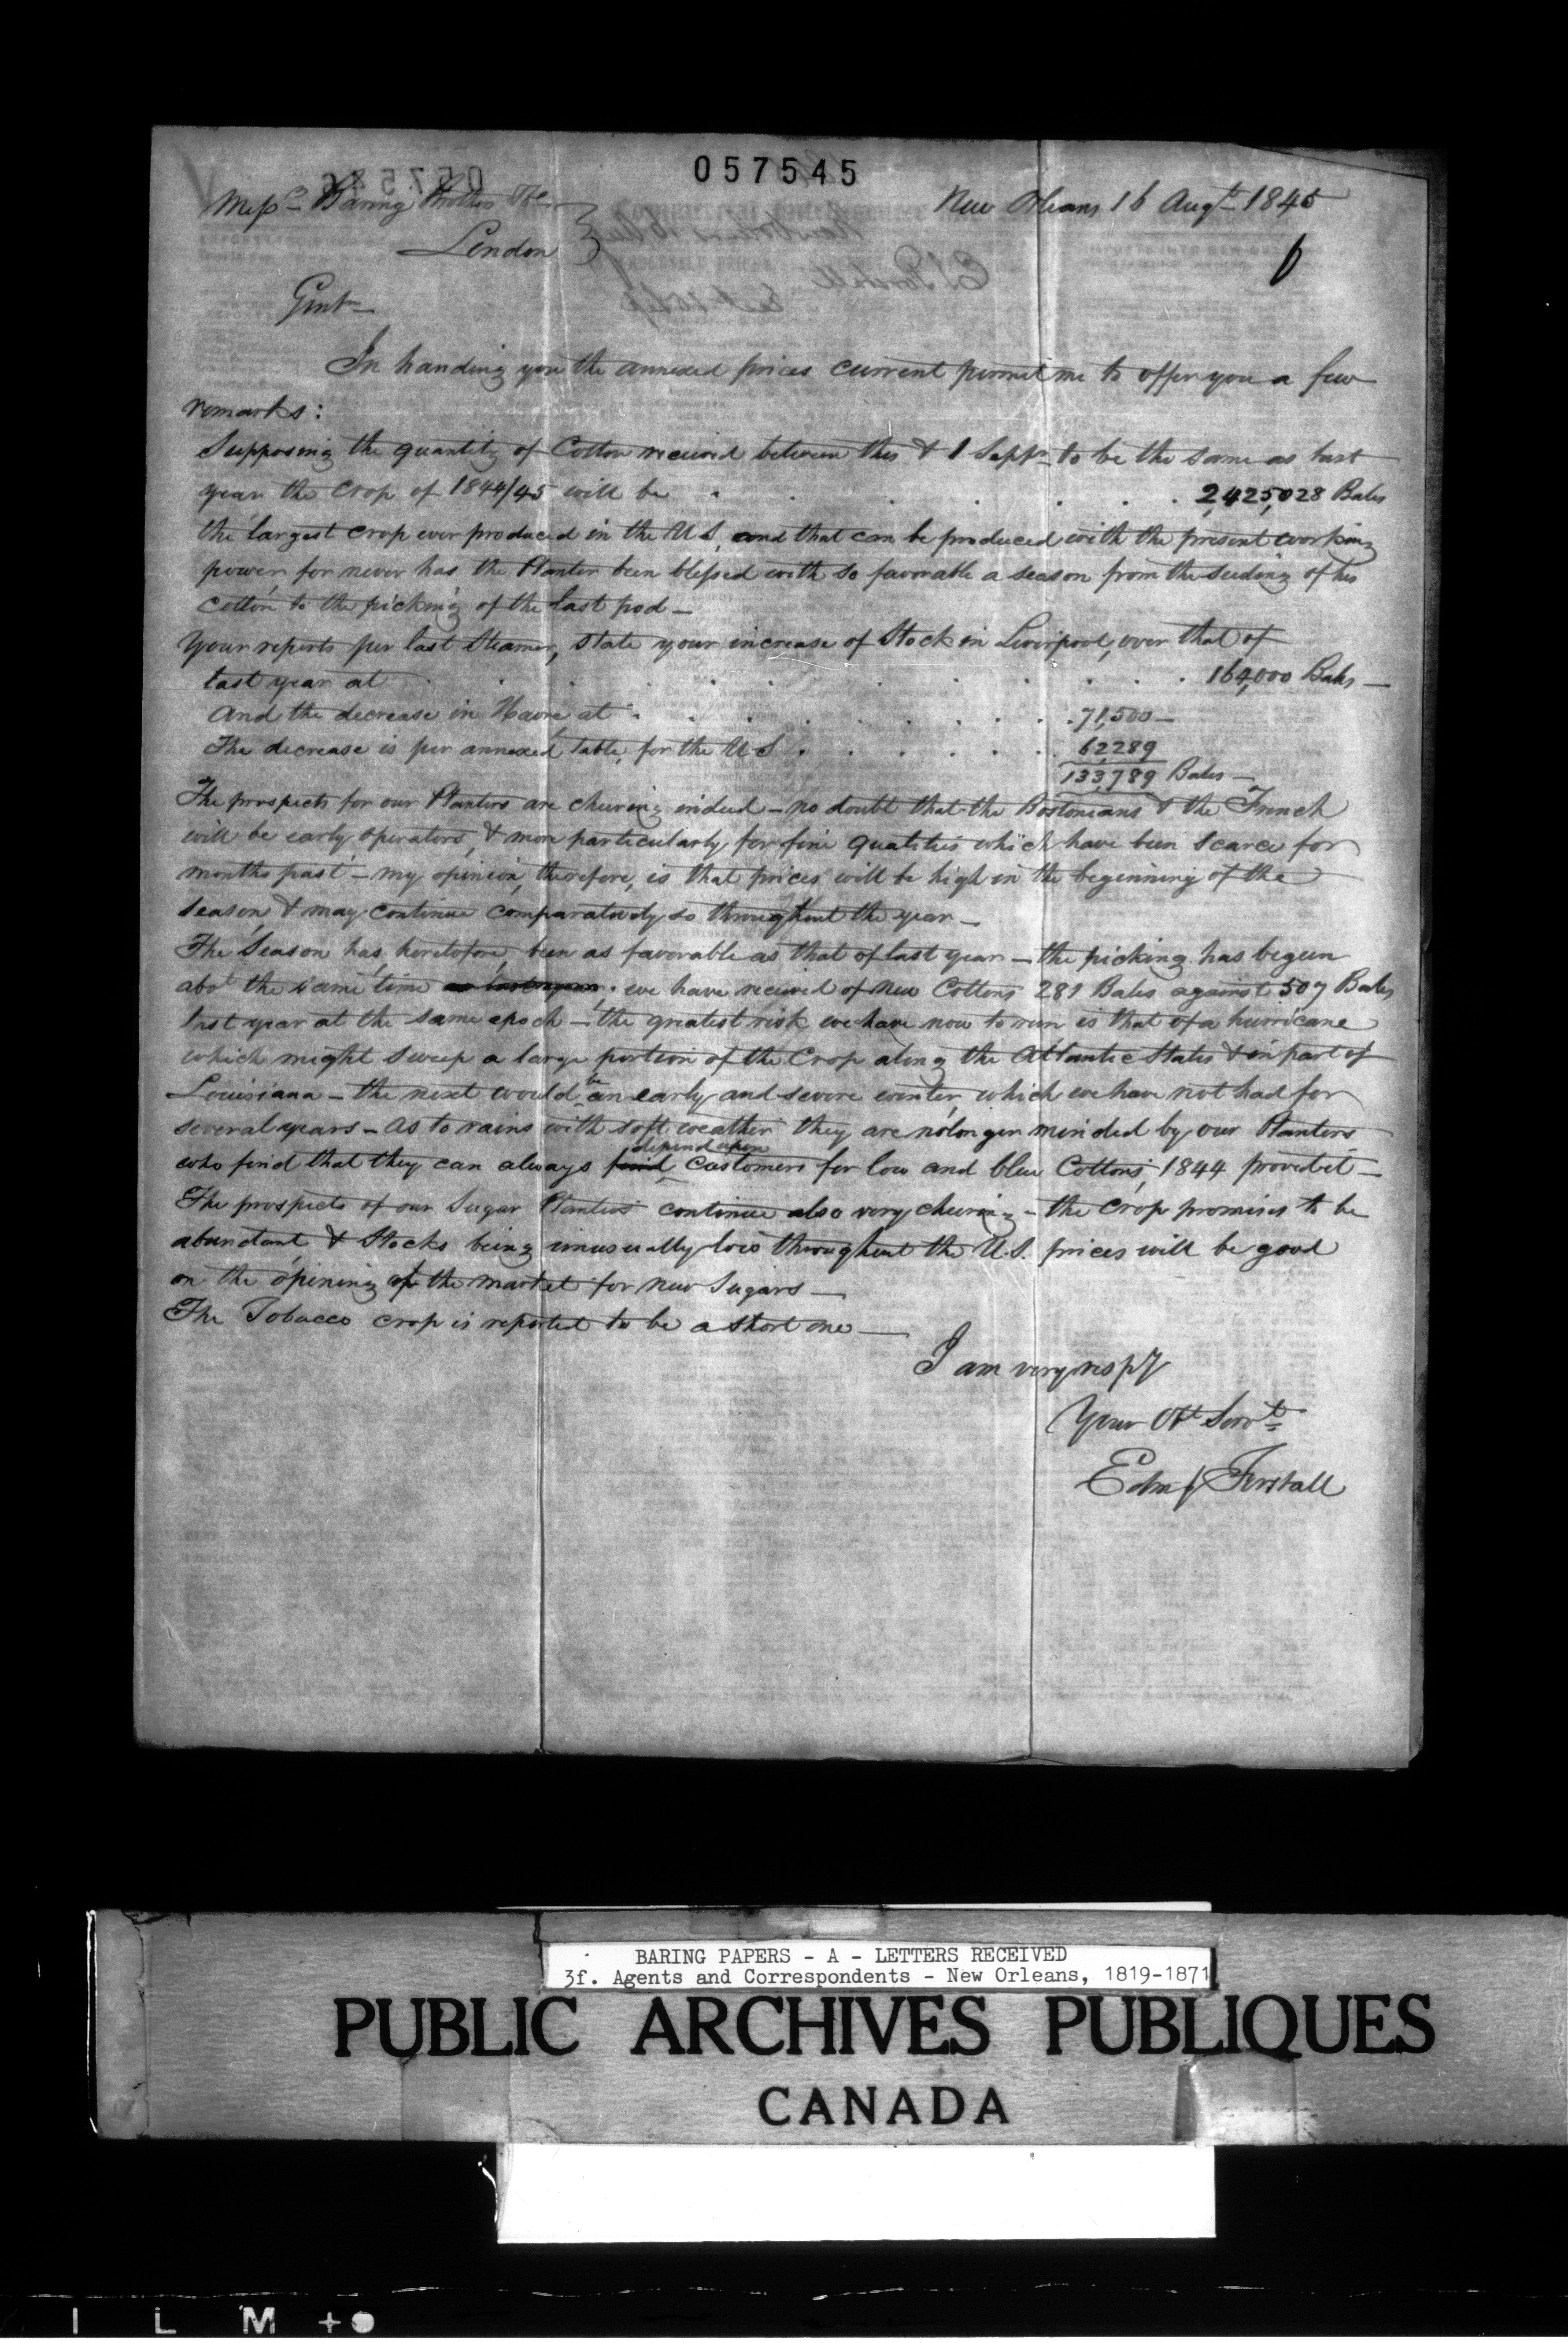 057545
Messrs Baring Brothers & Co
New Orleans 16 Augt 1845
London
Gentn
In handing you the annexed prices current permit me to offer you a few
remarks:
Supposing the quantity of Cotton received between this & 1 Septr to be the same as last
year the Crop of 1844/45 will be . . . . . . 2,425,028 Bales
the largest crop ever produced in the U S, and that can be produced with the present working
power, for never has the Planter been blessed with so favorable a season from the seeding of his
cotton to the picking of the last pod —
Your reports per last Steamer, state your increase of Stock in Liverpool, over that of
last year at . . . . . . . . . . 164,000 Bales —
And the decrease in Havre at . . . . . . . . 71,500 —
The decrease is per annexed table, for the U S . . . . . . 62,289
133,789 Bales —
The prospects for our Planters are cheering indeed — no doubt that the Bostonians & the French
will be early operators, & more particularly for fine qualities which have been scarce for
months past — my opinion, therefore, is that prices will be high in the beginning of the
season, & may continue comparatively so throughout the year —
The Season has, heretofore, been as favorable as that of last year — the picking has begun
abot the same time as last year. we have received of new Cottons 281 Bales against 507 Bales
last year at the same epoch — the greatest risk we have now to run is that of a hurricane
which might sweep a large portion of the Crop along the Atlantic States & in part of
Louisiana — the next would be an early and severe winter, which we have not had for
several years — As to rains with soft weather they are no longer minded by our Planters
who find that they can always find depend upon Customers for low and blue Cottons, 1844 proved it —
The prospects of our Sugar Planters continue also very cheering — the Crop promises to be
abundant, & Stocks being unusually low throughout the U.S. prices will be good
on the opening of the market for new Sugars —
The Tobacco crop is reported to be a short one —
I am very respy
Your Obt Servt
Edm J Forstall
BARING PAPERS - A - LETTERS RECEIVED
3f. Agents and Correspondents - New Orleans, 1819-1871
PUBLIC ARCHIVES PUBLIQUES
CANADA
I L M +